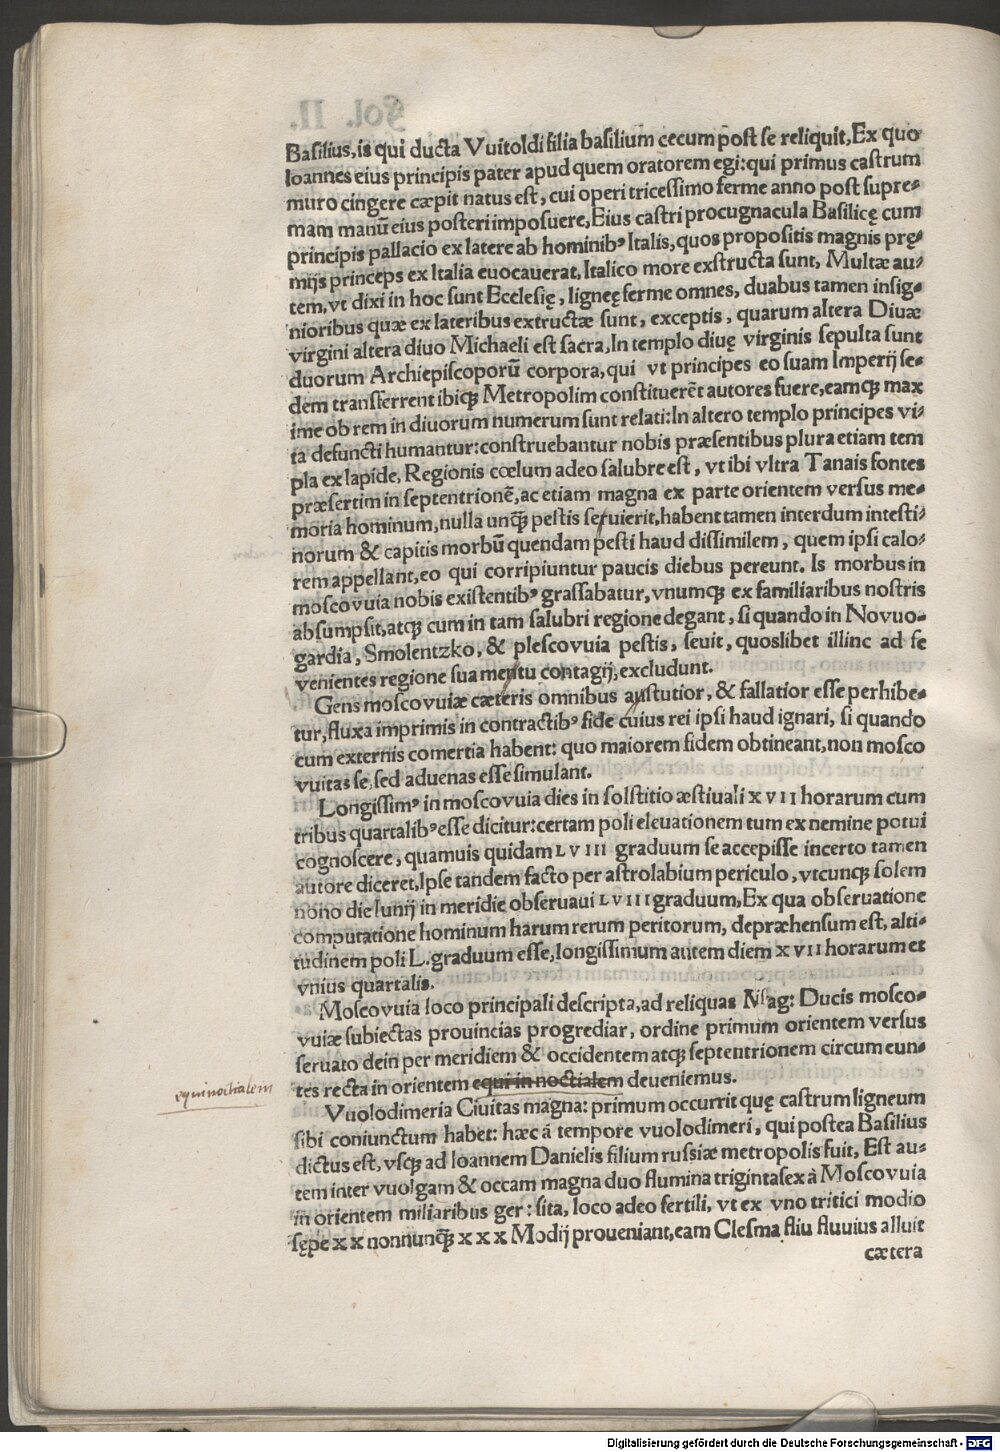 Basilius, is qui ducta Vuitoldi filia basilium cecum post se reliquit, Ex quo
Ioannes eius principis pater apud quem oratorem egi: qui primus castrum
muro cingere cæpit natus est, cui operi tricessimo ferme anno post supre-
mam manū eius posteri imposuere, Eius castri procugnacula Basilicę cum
principis pallacio ex latere ab hominibꝰ Italis, quos propositis magnis prę-
mijs princeps ex Italia euocauerat, Italico more exstructa sunt, Multæ au-
tem, vt dixi in hoc sunt Ecclesię, ligneę ferme omnes, duabus tamen insig-
nioribus quæ ex lateribus extructæ sunt, exceptis, quarum altera Diuæ
virgini altera diuo Michaeli est sacra, In templo diuę virginis sepulta sunt
duorum Archiepiscoporū corpora, qui vt principes eo suam Imperij se-
dem transferrent ibicꝫ Metropolim constituerēt autores fuere, eamcꝫ max
ime ob rem in diuorum numerum sunt relati: In altero templo principes vi-
ta defuncti humantur: construebantur nobis præsentibus plura etiam tem
pla ex lapide, Regionis cœlum adeo salubre est, vt ibi vltra Tanais fontes
præsertim in septentrionē, ac etiam magna ex parte orientem versus me-
moria hominum, nulla uncꝫ pestis sefuierit, habent tamen interdum intesti-
norum & capitis morbū quendam pesti haud dissimilem, quem ipsi calo-
rem appellant, eo qui corripiuntur paucis diebus pereunt. Is morbus in
moscovuia nobis existentibꝰ grassabatur, vnumcꝫ ex familiaribus nostris
absumpsit, atcꝫ cum in tam salubri regione degant, si quando in Novuo-
gardia, Smolentzko, & plescovuia pestis, seuit, quoslibet illinc ad se
venientes regione sua metu contagij, excludunt.
Gens moscovuiæ cæteris omnibus astutior, & fallatior esse perhibe-
tur, fluxa imprimis in contractibꝰ fide cuius rei ipsi haud ignari, si quando
cum externis comertia habent: quo maiorem fidem obtineant, non mosco
vuitas se, sed aduenas esse simulant.
Longissimꝰ in moscovuia dies in solstitio æstiuali xvii horarum cum
tribus quartalibꝰ esse dicitur: certam poli eleuationem tum ex nemine potui
cognoscere, quamuis quidam LVIII graduum se accepisse incerto tamen
autore diceret, Ipse tandem facto per astrolabium periculo, vtcuncꝫ solem
nono die Iunij in meridie obseruaui LVIII graduum, Ex qua obseruatione
computatione hominum harum rerum peritorum, depræhensum est, alti-
tudinem poli L. graduum esse, longissimum autem diem xvii horarum et
vnius quartalis.
Moscovuia loco principali descripta, ad reliquas Mag: Ducis mosco-
vuiæ subiectas prouincias progrediar, ordine primum orientem versus
seruato dein per meridiem & occidentem atcꝫ septentrionem circum eun-
tes recta in orientem equi in noctialem deueniemus.
equinoctialem
Vuolodimeria Ciuitas magna: primum occurrit quę castrum ligneum
sibi coniunctum habet: hæc ā tempore vuolodimeri, qui postea Basilius
dictus est, vscꝫ ad Ioannem Danielis filium russiæ metropolis fuit, Est au-
tem inter vuolgam & occam magna duo flumina trigintasex à Moscovuia
in orientem miliaribus ger: sita, loco adeo fertili, vt ex vno tritici modio
sępe xx nonnuncꝫ xxx Modij proueniant, eam Clesma fliu fluvius alluit
cætera
Digitalisierung gefördert durch die Deutsche Forschungsgemeinschaft - DFG